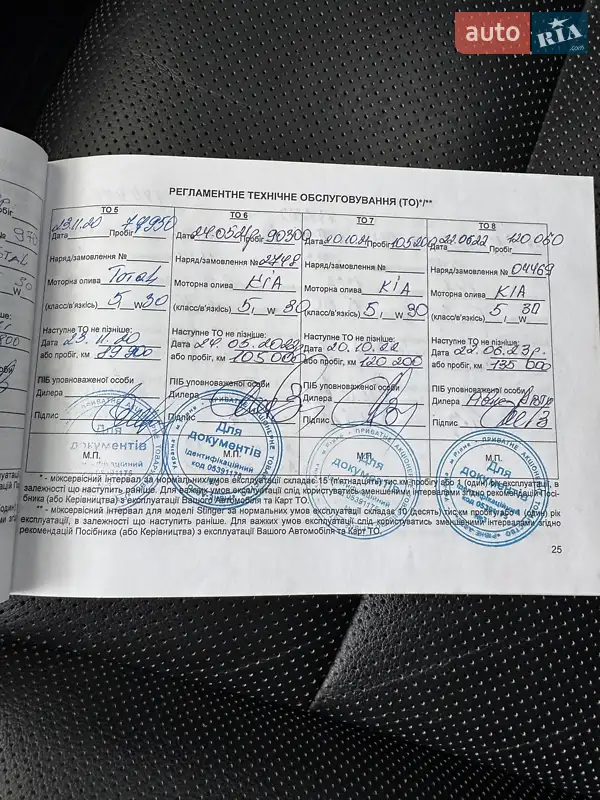 auto RIA .com
РЕГЛАМЕНТНЕ ТЕХНІЧНЕ ОБСЛУГОВУВАННЯ (ТО)*/**
ТО 5 ТО 6 ТО 7 ТО 8
23.11.20 Дата Пробіг 24.05.21 Дата Пробіг 90300 Дата 20.10.21 Пробіг 105200 22.06.22 Дата Пробіг 120.060
Наряд/замовлення № Наряд/замовлення № 2748 Наряд/замовлення № Наряд/замовлення № 04469
Моторна олива Тотал Моторна олива КІА Моторна олива КІА Моторна олива КІА
(класс/в'язкість) 5, w 30 (класс/в'язкість) 5, w 30 (класс/в'язкість) 5, w 30 (класс/в'язкість) 5, w 30
Наступне ТО не пізніше: Наступне ТО не пізніше: Наступне ТО не пізніше: Наступне ТО не пізніше:
Дата 23.11.20 Дата 24.05.2023 Дата 20.10.22 Дата 22.06.23р.
або пробіг, км або пробіг, км 105 000 або пробіг, км 120 200 або пробіг, км 135 000
ПІБ уповноваженої особи ПІБ уповноваженої особи ПІБ уповноваженої особи ПІБ уповноваженої особи
Дилера Дилера Дилера Дилера
Підпис Підпис Підпис Підпис
Для документів
ідентифікаційний
код 05391171
М.П. М.П. М.П. М.П.
* - міжсервісний інтервал за нормальних умов експлуатації складає 15 (п'ятнадцять) тис.км пробігу або 1 (один) рік експлуатації, в
залежності що наступить раніше. Для важких умов експлуатації слід користуватись зменшеними інтервалами згідно рекомендацій Посі-
бника (або Керівництва) з експлуатації Вашого Автомобіля та Карт ТО.
** - міжсервісний інтервал для моделі Stinger за нормальних умов експлуатації складає 10 (десять) тис.км пробігу або 1 (один) рік
експлуатації, в залежності що наступить раніше. Для важких умов експлуатації слід користуватись зменшеними інтервалами згідно
рекомендацій Посібника (або Керівництва) з експлуатації Вашого Автомобіля та Карт ТО.
25